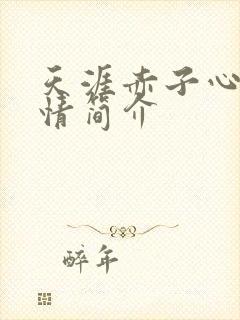 天涯赤子心
情简介
醉年